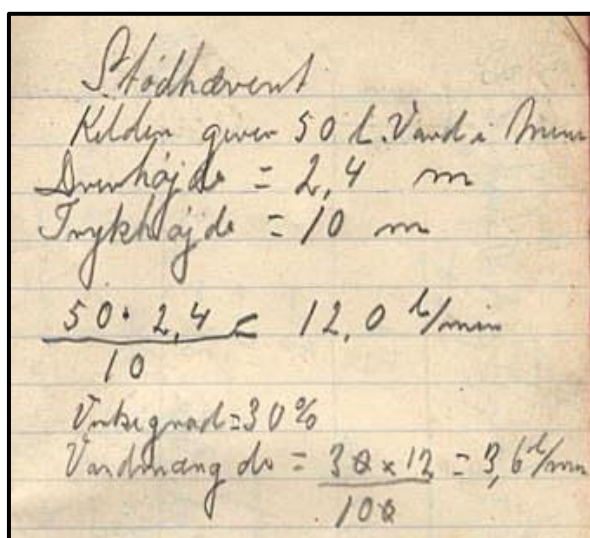 Stødhævert
Kilden giver 50 l. Vand i Min
Drivhøjde = 2,4 m
Trykhøjde = 10 m
50 · 2,4 = 12,0 l/min
10
Virkegrad = 30%
Vandmængde = 30 x 12 = 3,6 l/min
100